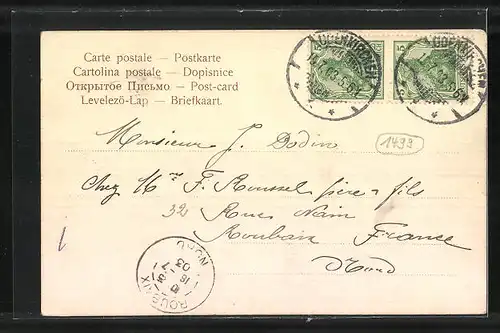 Carte postale — Postkarte
Cartolina postale — Dopisnice
Открытое Письмо — Post-card
Levelező-Lap — Briefkaart.
ODENKIRCHEN
5
5
Monsieur J. Dodin
1499
Chez Mr F. Roussel père & fils
32 Rue Nain
Roubaix France
Nord
ROUBAIX
NORD